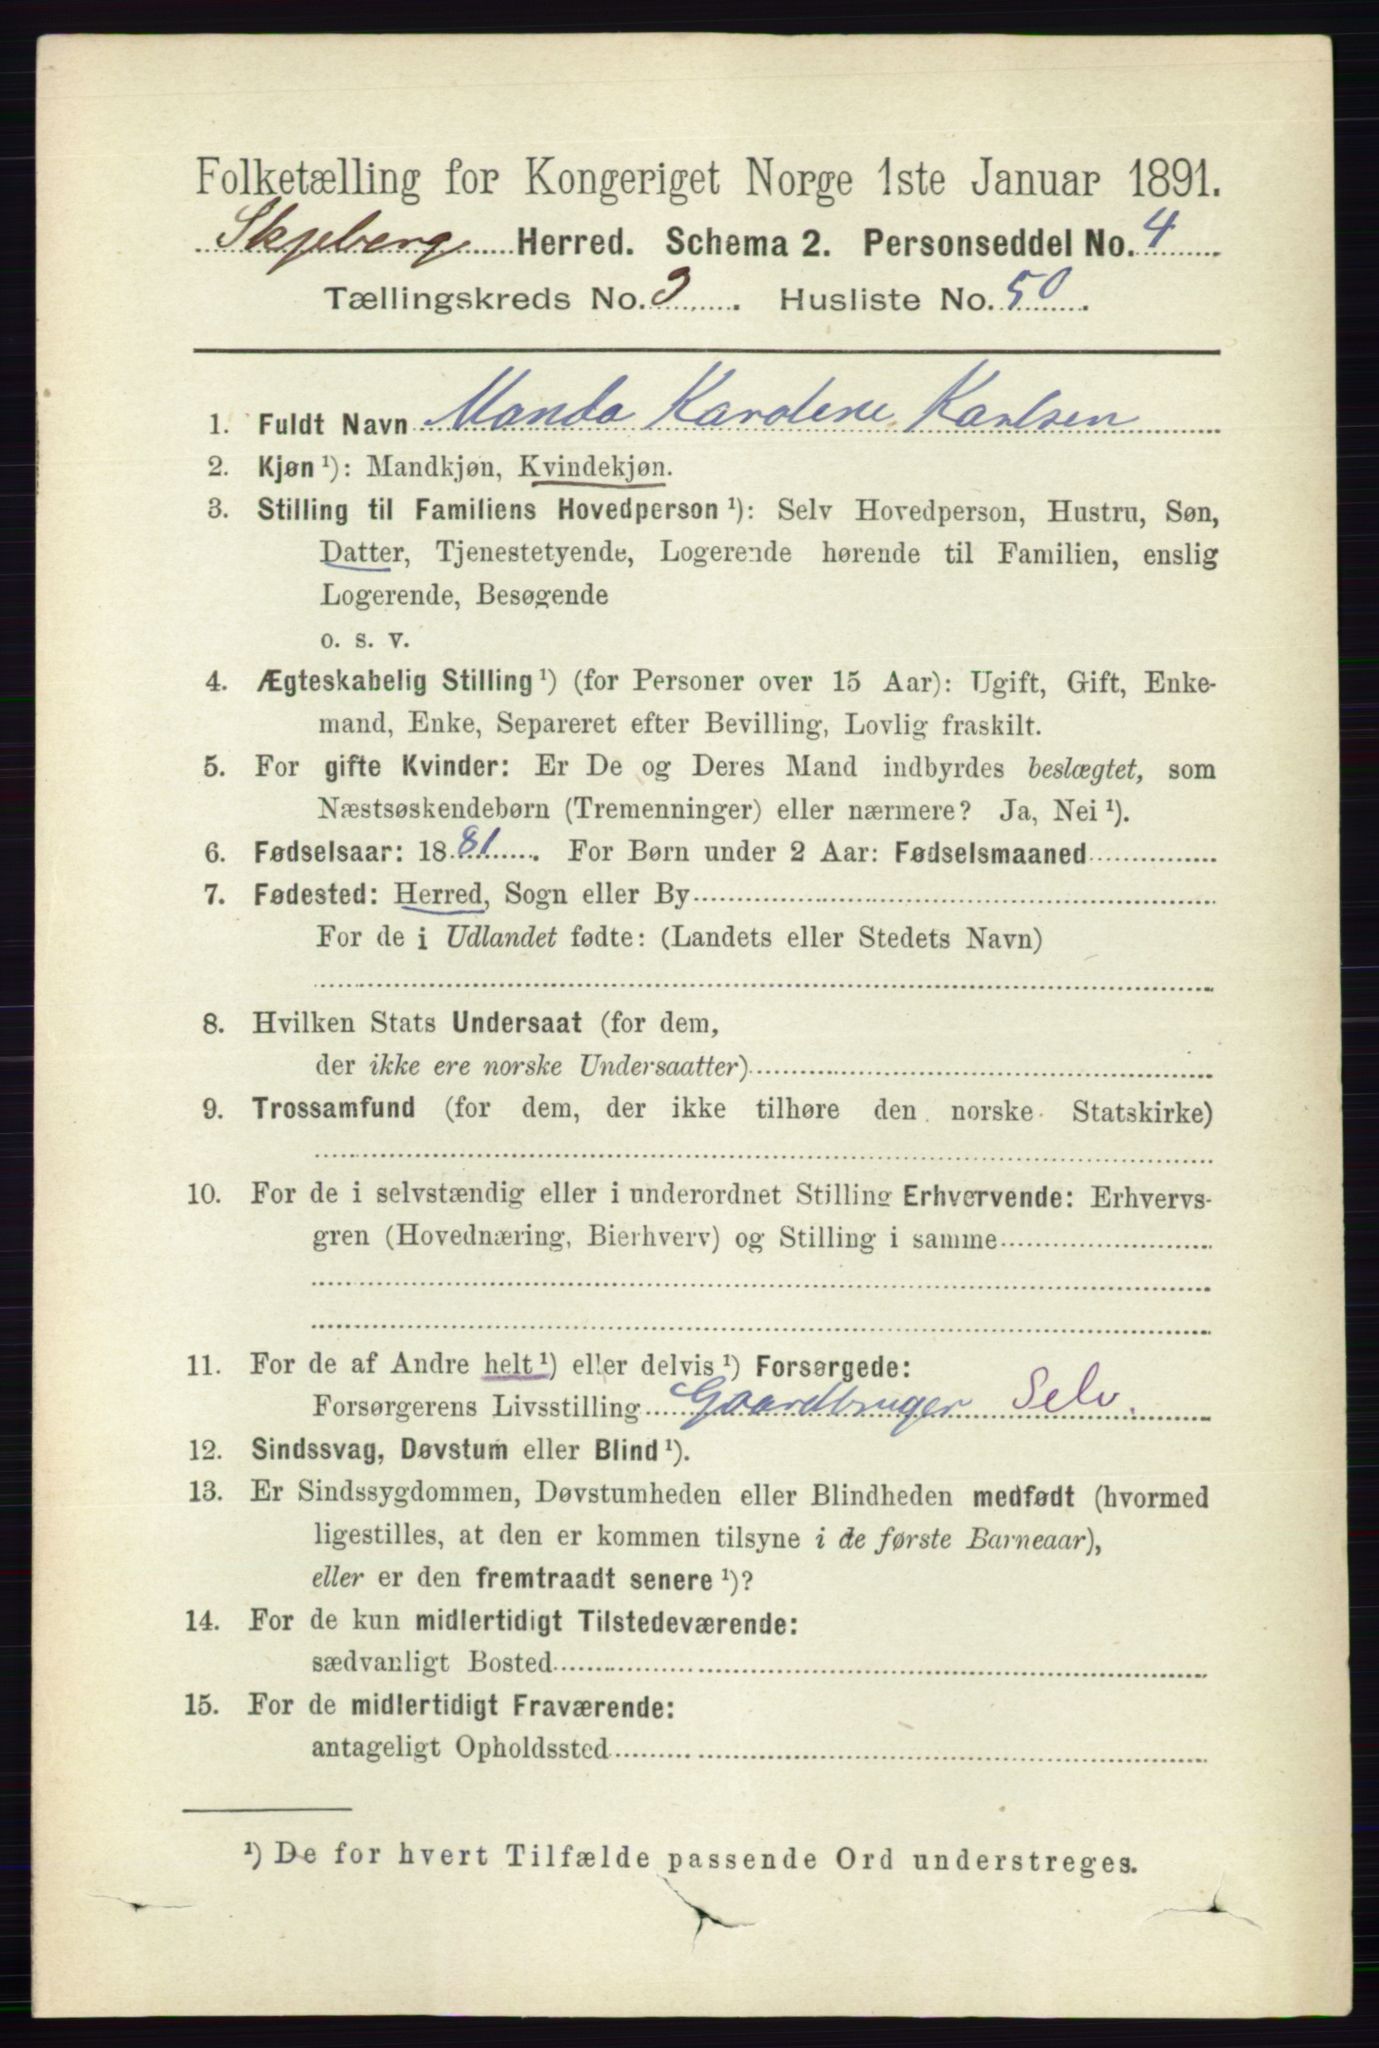 Folketælling for Kongeriget Norge 1ste Januar 1891.
Skjeberg Herred. Schema 2. Personseddel No. 4
Tællingskreds No. 3. Husliste No. 50.
1. Fuldt Navn Manda Karolene Karlsen
2. Kjøn ¹): Mandkjøn, Kvindekjøn.
3. Stilling til Familiens Hovedperson ¹): Selv Hovedperson, Hustru, Søn,
Datter, Tjenestetyende, Logerende hørende til Familien, enslig
Logerende, Besøgende
o. s. v.
4. Ægteskabelig Stilling ¹) (for Personer over 15 Aar): Ugift, Gift, Enke-
mand, Enke, Separeret efter Bevilling, Lovlig fraskilt.
5. For gifte Kvinder: Er De og Deres Mand indbyrdes beslægtet, som
Næstsøskendebørn (Tremenninger) eller nærmere? Ja, Nei ¹).
6. Fødselsaar: 1881. For Børn under 2 Aar: Fødselsmaaned
7. Fødested: Herred, Sogn eller By
For de i Udlandet fødte: (Landets eller Stedets Navn)
8. Hvilken Stats Undersaat (for dem,
der ikke ere norske Undersaatter)
9. Trossamfund (for dem, der ikke tilhøre den norske Statskirke)
10. For de i selvstændig eller i underordnet Stilling Erhvervende: Erhvervs-
gren (Hovednæring, Bierhverv) og Stilling i samme
11. For de af Andre helt ¹) eller delvis ¹) Forsørgede:
Forsørgerens Livsstilling Gaardbruger Selv.
12. Sindssvag, Døvstum eller Blind ¹).
13. Er Sindssygdommen, Døvstumheden eller Blindheden medfødt (hvormed
ligestilles, at den er kommen tilsyne i de første Barneaar),
eller er den fremtraadt senere ¹)?
14. For de kun midlertidigt Tilstedeværende:
sædvanligt Bosted
15. For de midlertidigt Fraværende:
antageligt Opholdssted
¹) De for hvert Tilfælde passende Ord understreges.